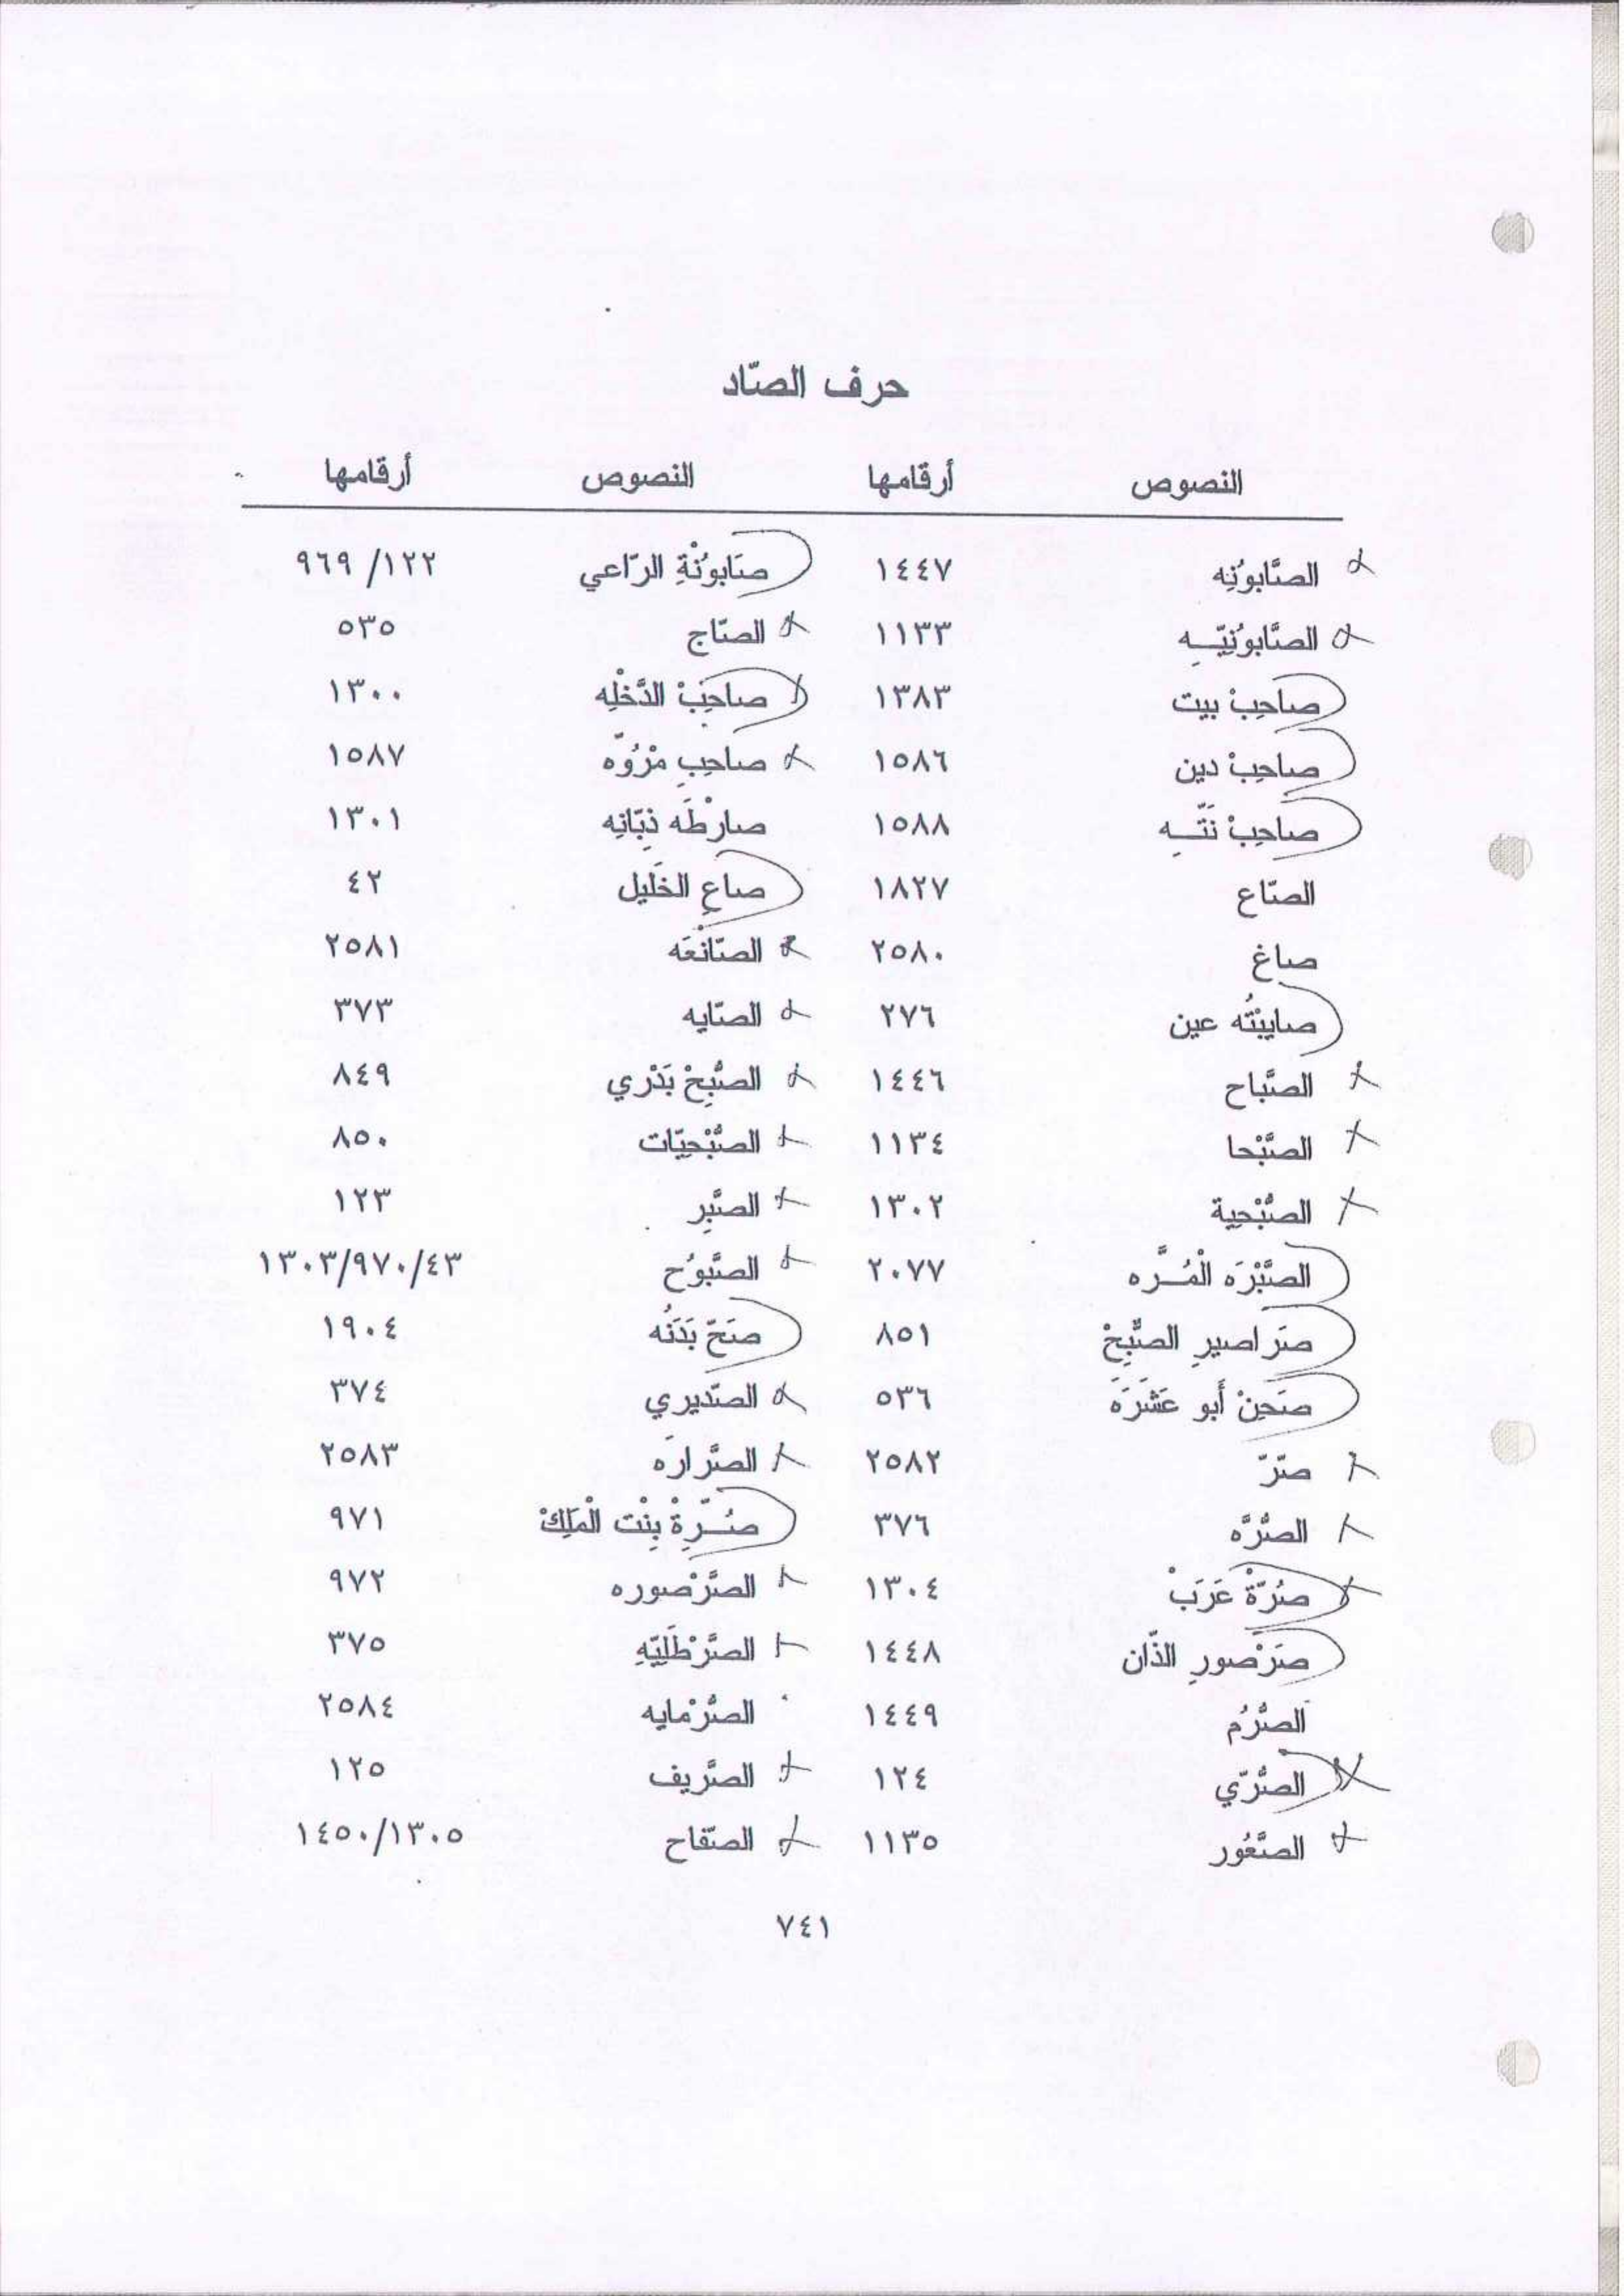 حرف الصّاد
النصوص أرقامها النصوص أرقامها
الصَّابوُنِه ١٤٤٧ صَابوُنْةِ الرّاعي ١٢٢/ ٩٦٩
الصَّابوُنِيّـه ١١٣٣ الصّاج ٥٣٥
صاحِبْ بيت ١٣٨٣ صاحِبْ الدَّخْلِه ١٣٠٠
صاحِبْ دين ١٥٨٦ صاحِبِ مْرُوّه ١٥٨٧
صاحِبْ ١٥٨٨ صارْطَه ذبّانِه ١٣٠١
الصّاع ١٨٢٧ صاعِ الخَليل ٤٢
صاغ ٢٥٨٠ الصّانْعَه ٢٥٨١
صايبْتُه عين ٢٧٦ الصّايه ٣٧٣
الصَّباح ١٤٤٦ الصُّبِحْ بَدْري ٨٤٩
الصَّبْحا ١١٣٤ الصُّبْحِيّات ٨٥٠
الصُّبْحية ١٣٠٢ الصَّبِر ١٢٣
الصَّبْرَه الْمُـرَّه ٢٠٧٧ الصَّبوُح ٤٣/٩٧٠/١٣٠٣
صَر اصيرِ الصُّبِحْ ٨٥١ صَحّ بَدَنُه ١٩٠٤
صَحِنْ أَبو عَشَرَه ٥٣٦ الصّديري ٣٧٤
صَرّ ٢٥٨٢ الصَّرارَه ٢٥٨٣
الصُّرَّه ٣٧٦ صُـرِّةْ بِنْت الْمَلِكْ ٩٧١
صُرّةْ عَرَبْ ١٣٠٤ الصَّرْصوره ٩٧٢
صَرْصورِ الذّان ١٤٤٨ الصَّرْطَلِيِّهِ ٣٧٥
الصُّرُم ١٤٤٩ الصُّرْمايه ٢٥٨٤
الصُّرّي ١٢٤ الصَّريف ١٢٥
الصَّعُور ١١٣٥ الصّفاح ١٣٠٥/١٤٥٠
٧٤١